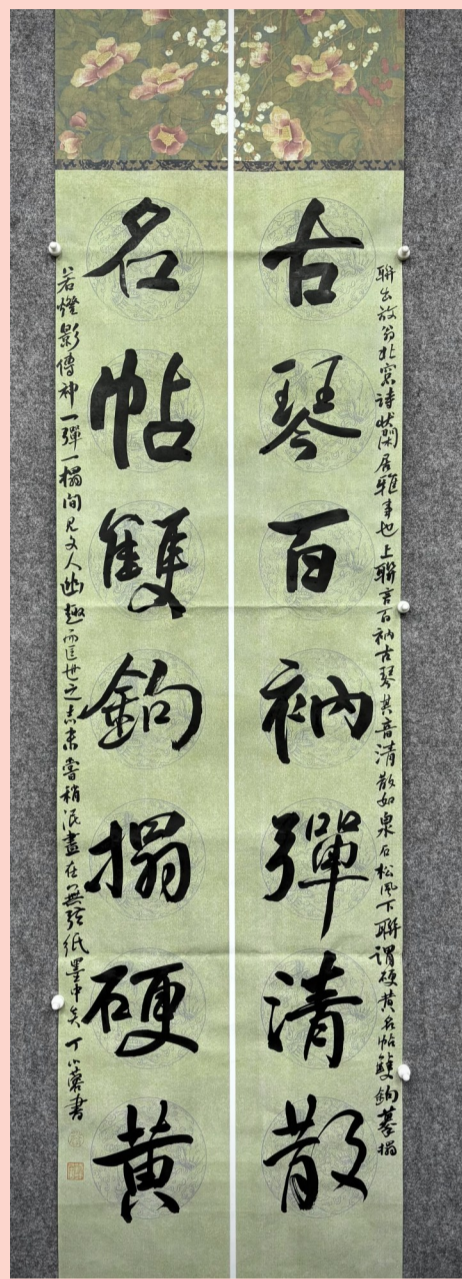 古琴百衲彈清散
名帖雙鉤搨硬黃
聯出放翁北窗詩狀閑居雅事也上聯言百衲古琴其音清散如泉石松風下聯謂硬黃名帖雙鉤摹搨
若燈影傳神一彈一搨間見文人幽趣而匡世之志未嘗稍泯盡在無弦紙墨中矣 丁小蓉書